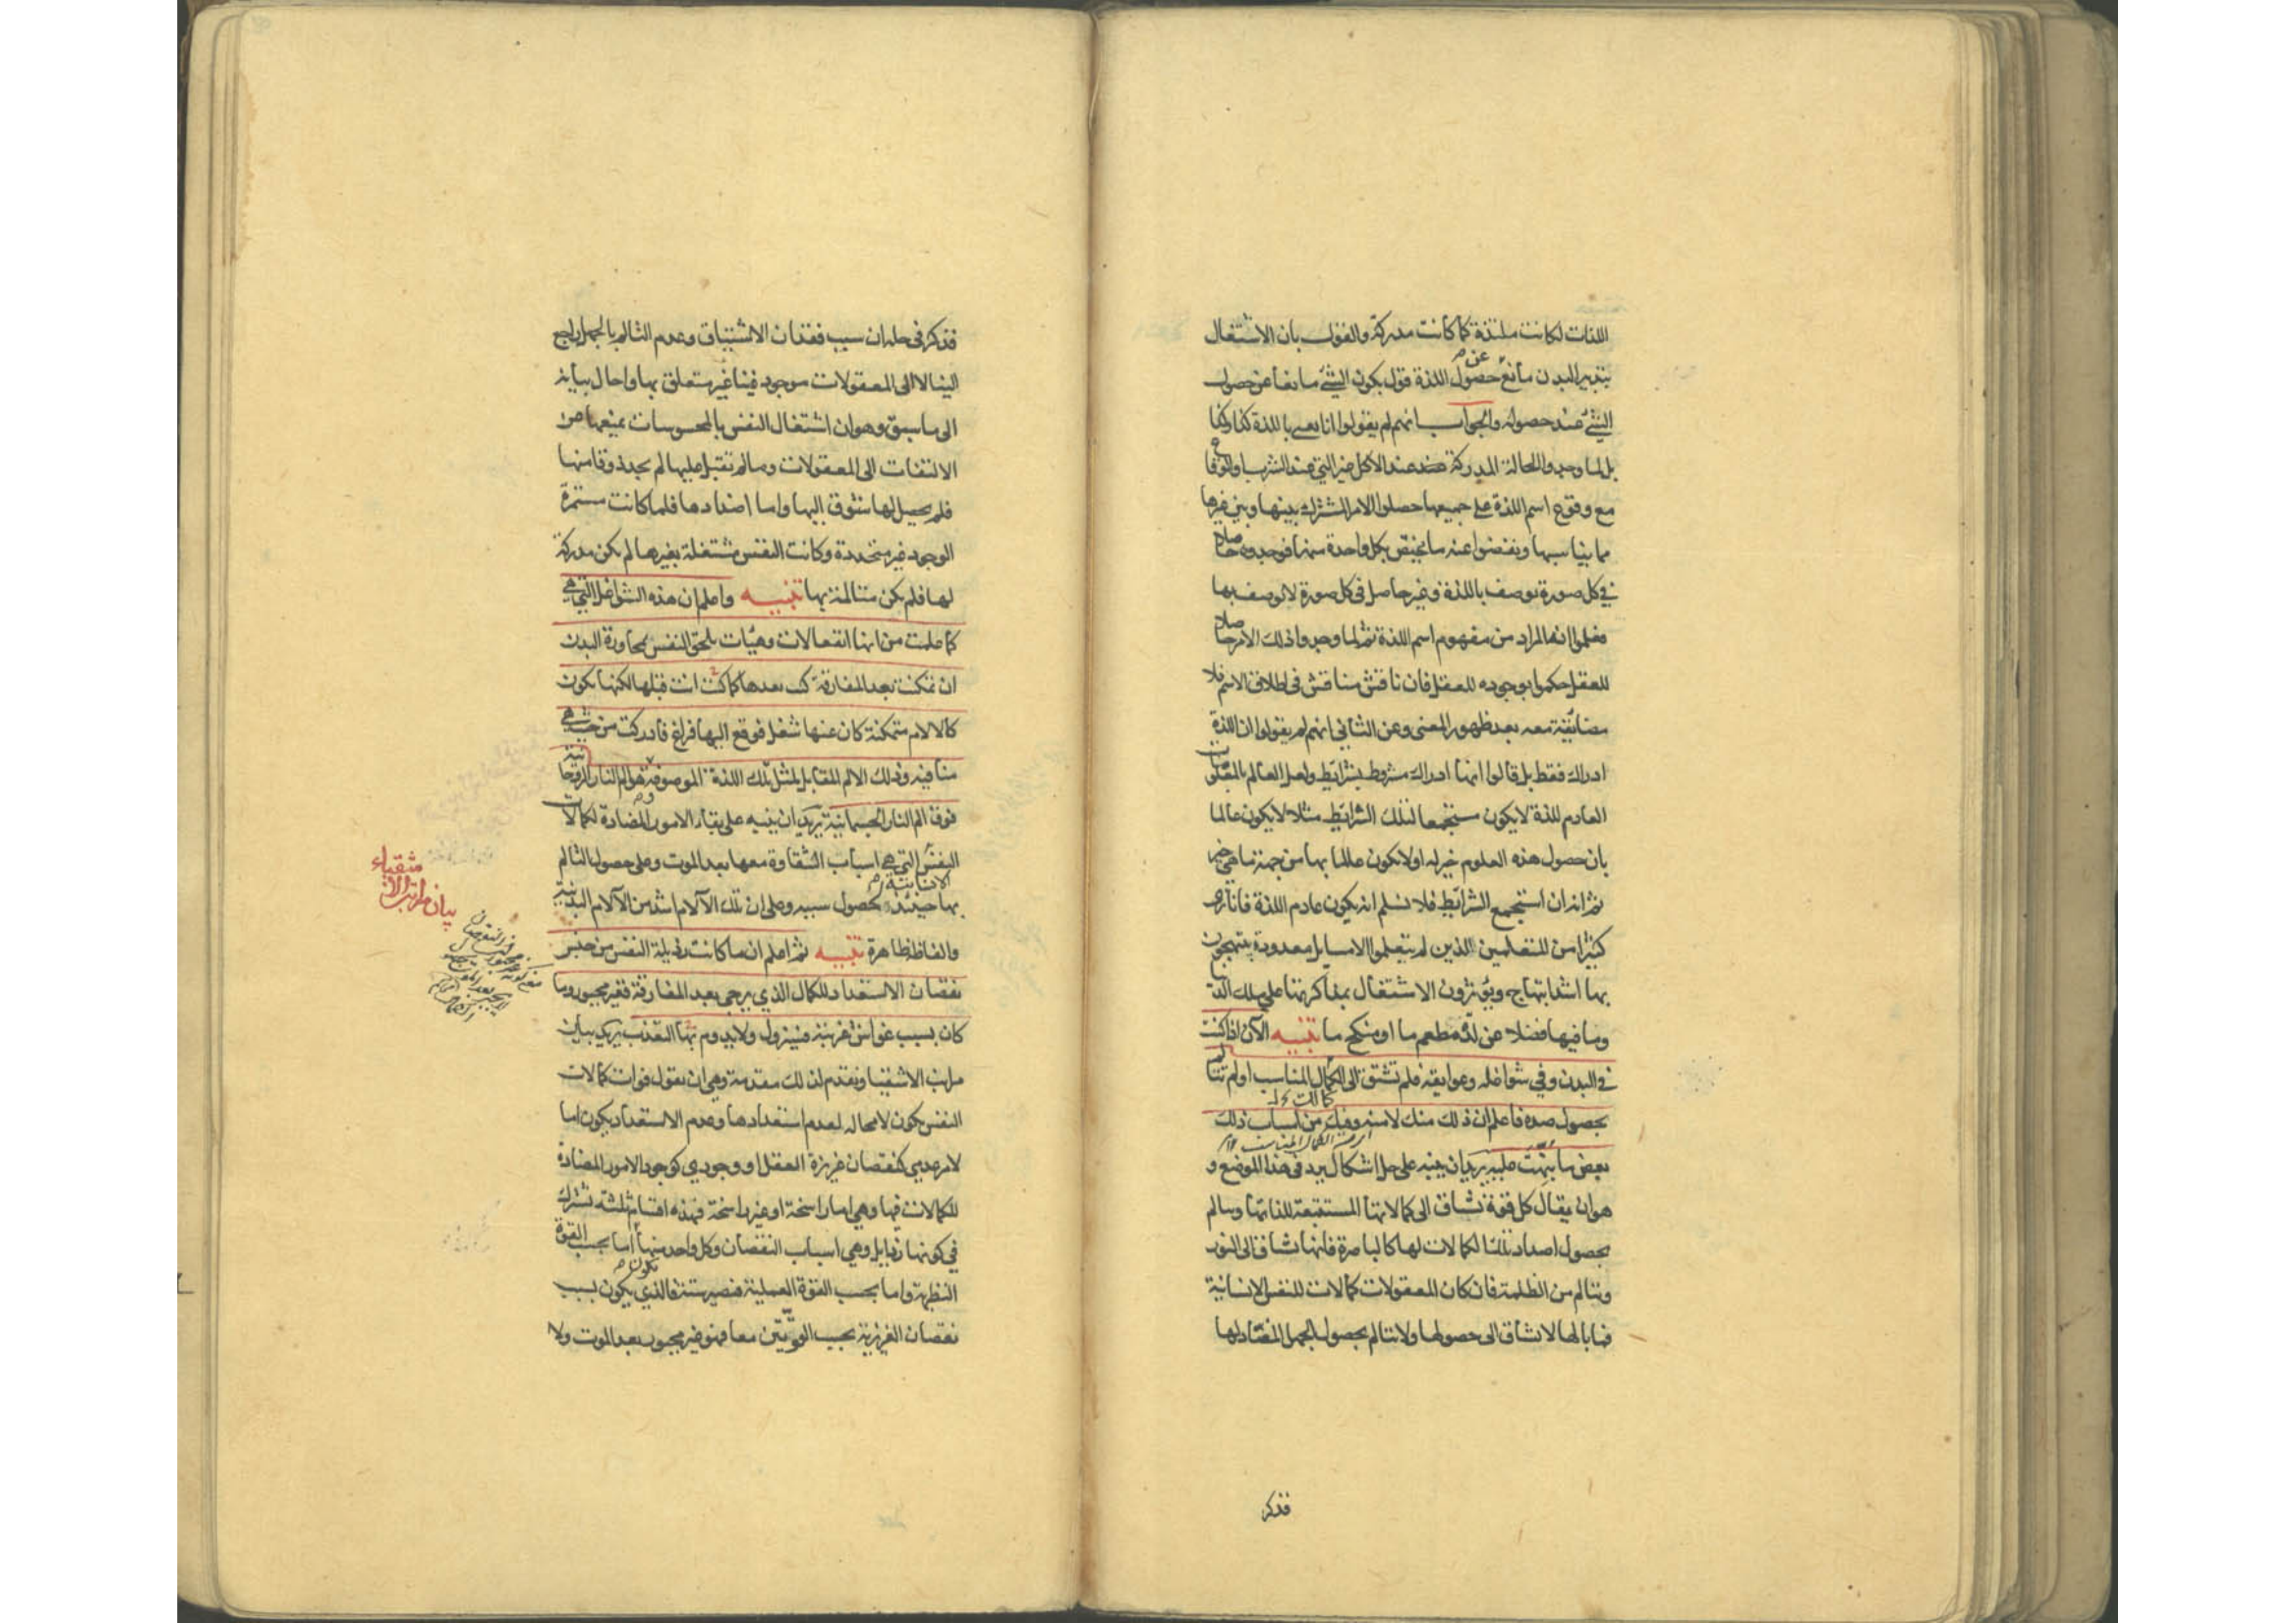 اللذات لكانت ملتذة كما كانت مدركة والقول بان الاشتغال
بتدبير البدن مانع عن حصول اللذة قول بكون الشئ مانعا عن حصول
الشئ عند حصوله والجواب انهم لم يقولوا انا نعنى باللذة كذا وكذا
بل لما وجدوا الحالة المدركة عند الاكل غير التي عند الشرب او الوقاع
مع وقوع اسم اللذة على جميعها حصلوا الامر المشترك بينها وبين غيرها
مما يناسبها ونفضوا عنه ما يختص بكل واحدة منها فوجدوه حاصلا
في كل صورة توصف باللذة وغير حاصل فى كل صورة لا توصف بها
فعلموا انه المراد من مفهوم اسم اللذة ثم لما وجدوا ذلك الامر حاصلا
للعقل حكموا بوجوده للعقل فان ناقش مناقش فى اطلاق الاسم فلا
مضايقة معه بعد ظهور المعنى وعن الثاني انهم لم يقولوا ان اللذة
ادراك فقط بل قالوا انها ادراك مشروط بشرائط ولعل العالم بالمعقولات
العادم للذة لا يكون مستجمعا لتلك الشرائط مثلا لا يكون عالما
بان حصول هذه العلوم خير له او لا يكون عالما بها من جهة ما هي خير
ثم انه ان استجمع الشرائط فلا نسلم انه يكون عادم اللذة فانا نرى
كثيرا من المتعلمين الذين لم يتعلموا الا مسايل معدودة يبتهجون
بها اشد ابتهاج ويؤثرون الاشتغال بمذاكرتها على ملك الدنيا
وما فيها فضلا عن لذة مطعم ما او منكح ما تنبيه الآن اذا كنت
في البدن وفي شواغله وعوايقه فلم تشتق الى الكمال المناسب او لم تتالم
بحصول ضده فاعلم ان ذلك منك لا منه وفيك من اسباب ذلك
بعض ما نبهت عليه يريد ان ينبه على حل اشكال يرد فى هذا الموضع و
هو ان يقال كل قوة تشتاق الى كمالاتها المستتبعة للذاتها وتتالم
بحصول اضداد تلك الكمالات لها كالباصرة فانها تشتاق الى النور
وتتالم من الظلمة فان كان المعقولات كمالات للنفس الانسانية
فما بالها لا تشتاق الى حصولها ولا تتالم بحصول الجهل المضاد لها
فذكر
فذكر فى حله ان سبب فقدان الاشتياق وعدم التالم بالجهل راجع
الينا لا الى المعقولات موجود فينا غير متعلق بها واحال بيانه
الى ما سبق وهو ان اشتغال النفس بالمحسوسات يمنعها عن
الالتفات الى المعقولات وما لم تقبل عليها لم يجد ذوقا منها
فلم يحصل لها شوق اليها واما اضدادها فلما كانت مستمرة
الوجود غير متجددة وكانت النفس مشتغلة بغيرها لم يكن مدركة
لها فلم يكن متالمة بها تنبيه واعلم ان هذه الشواغل التي هي
كما علمت من انها انفعالات وهيئات تلحق النفس بمجاورة البدن
ان تمكنت بعد المفارقة كنت بعدها كما كنت انت قبلها لكنها تكون
كالالام متمكنة كان عنها شغل فوقع اليها فراغ فادركت من حيث هي
منافية وذلك الالم المقابل لمثل تلك اللذة الموصوفة هو الم النار الروحانية
فوق الم النار الجسمانية يريد ان ينبه على بقاء الامور المضادة لكمالات
النفس التي هي اسباب الشقاوة معها بعد الموت وعلى حصول التالم
بها حينئذ لحصول سببه وعلى ان تلك الآلام اشد من الآلام البدنية
والفاظه ظاهرة تنبيه ثم اعلم ان ما كانت رذيلة النفس من جنس
نقصان الاستعداد للكمال الذي يرجى بعد المفارقة فغير مجبور وما
كان بسبب غواش غريبة فيزول ولا يدوم بها التعذب يريد بيان
مراتب الاشقيا ونقدم لذلك مقدمة وهي ان نقول فوات كمالات
النفس يكون لا محاله لعدم استعدادها وعدم الاستعداد يكون اما
لامر عدمي كنقصان غريزة العقل او وجودي كوجود الامور المضادة
للكمالات فيها وهي اما راسخة او غير راسخة فهذه اقسام ثلثة تشترك
في كونها رذايل وهي اسباب النقصان وكل واحد منها اما بحسب القوة
النظرية واما بحسب القوة العملية فتصير ستة فالذي يكون بسبب
نقصان الغريزة بحسب القوتين معا فهو غير مجبور بعد الموت ولا
بيان مراتب الاشقياء